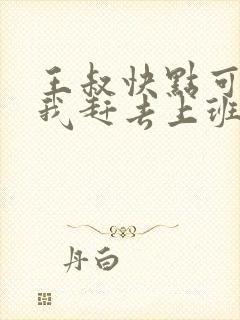 王叔快點可
我赶去上班
丹白